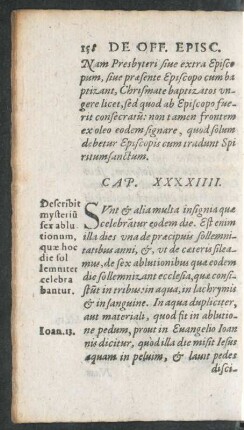 158 DE OFF. EPISC.
Nam Presbyteri siue extra Episco
pum, siue præsente Episcopo cum ba
ptizant, Chrismate baptizatos vn-
gere licet, sed quod ab Episcopo fue-
rit consecratũ: non tamen frontem
ex oleo eodem signare, quod solum
debetur Episcopis cum tradunt Spi
ritumsanctum.
CAP. XXXXIIII.
Describit
mysteriũ
sex ablu
tionum,
quæ hoc
die sol
lemniter
celebra
bantur.
SVnt & alia multa insignia quæ
celebrãtur eodem die. Est enim
illa dies vna de præcipuis sollemni-
tatibus anni, &, vt de cæteris silea-
mus, de sex ablutionibus quæ eodem
die sollemnizant ecclesia, quæ consi-
stũt in tribus: in aqua, in lachrymis
& in sanguine. In aqua dupliciter,
aut materiali, quod fit in ablutio-
Ioan. 13.
ne pedum, prout in Euangelio Ioan
nis dicitur, quod illa die misit Iesus
aquam in peluim, & lauit pedes
disci-